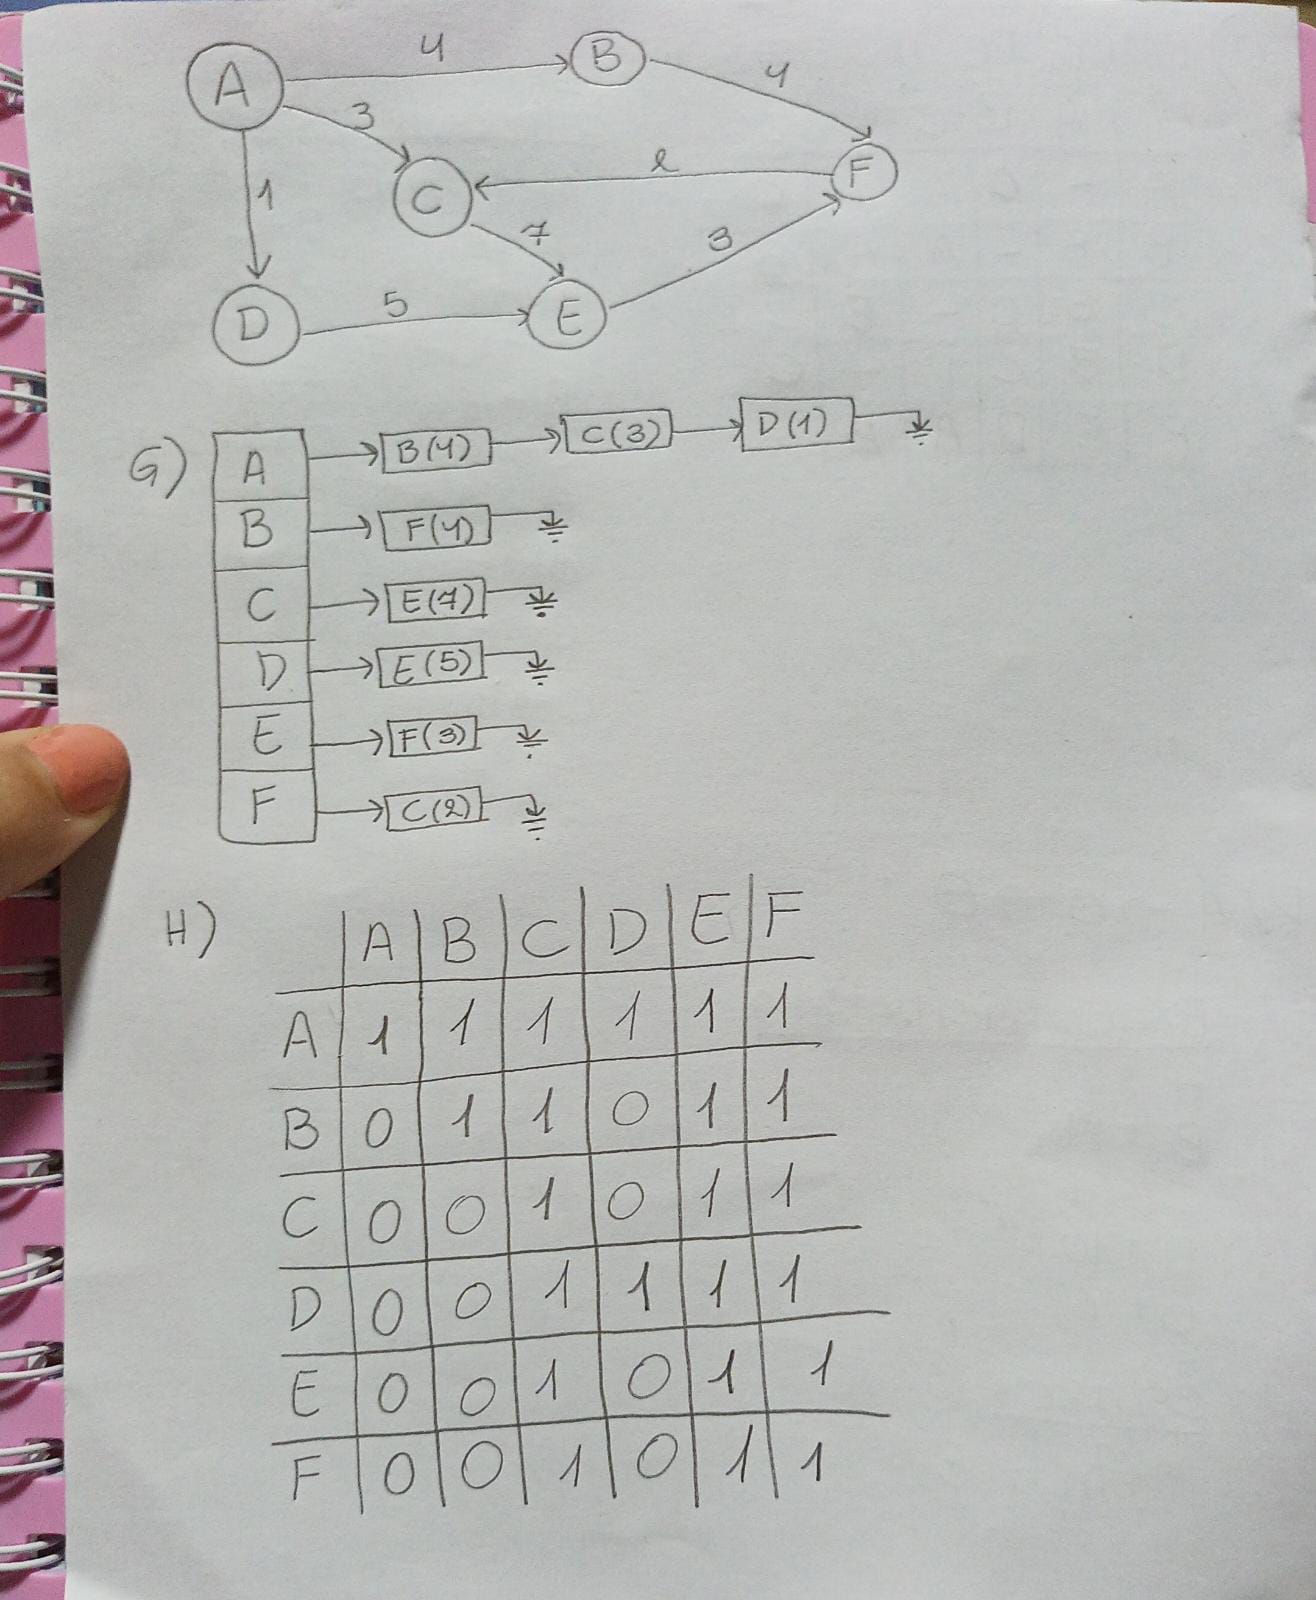 A 4 B 4
3
1 C 2 F
7 3
D 5 E
G) A B(4) C(3) D(1)
B F(4)
C E(7)
D E(5)
E F(3)
F C(2)
H) A B C D E F
A 1 1 1 1 1 1
B 0 1 1 0 1 1
C 0 0 1 0 1 1
D 0 0 1 1 1 1
E 0 0 1 0 1 1
F 0 0 1 0 1 1